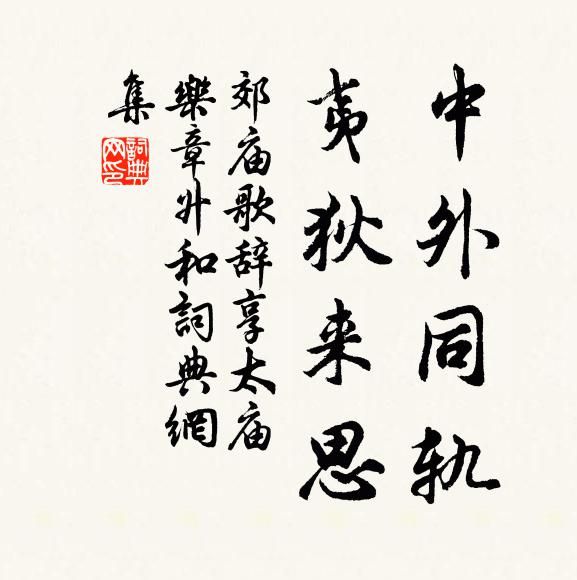 中外同軌
夷狄来思
郊庙歌辞享太庙
樂章舛和詞典網
集
詞典
网印